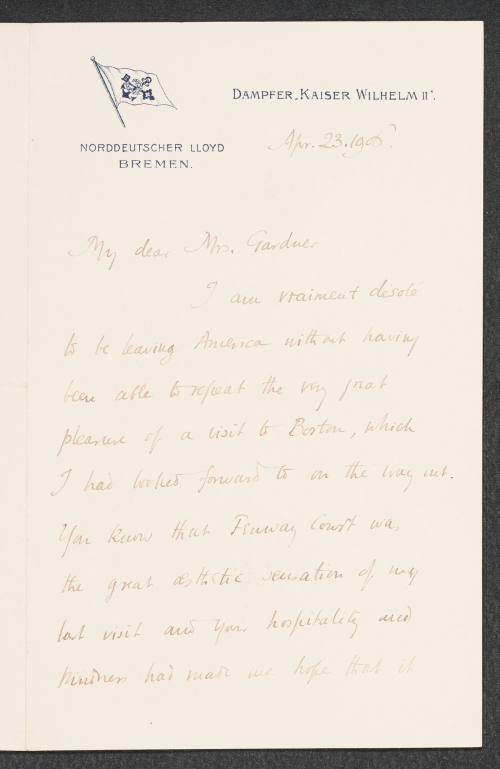 DAMPFER „KAISER WILHELM II".
NORDDEUTSCHER LLOYD
BREMEN.
Apr. 23. 1906
My dear Mrs. Gardner
I am vraiment désolé
to be leaving America without having
been able to repeat the very great
pleasure of a visit to Boston, which
I had looked forward to on the way out.
You know that Fenway Court was
the great æsthetic sensation of my
last visit and your hospitality and
kindness had made me hope that it